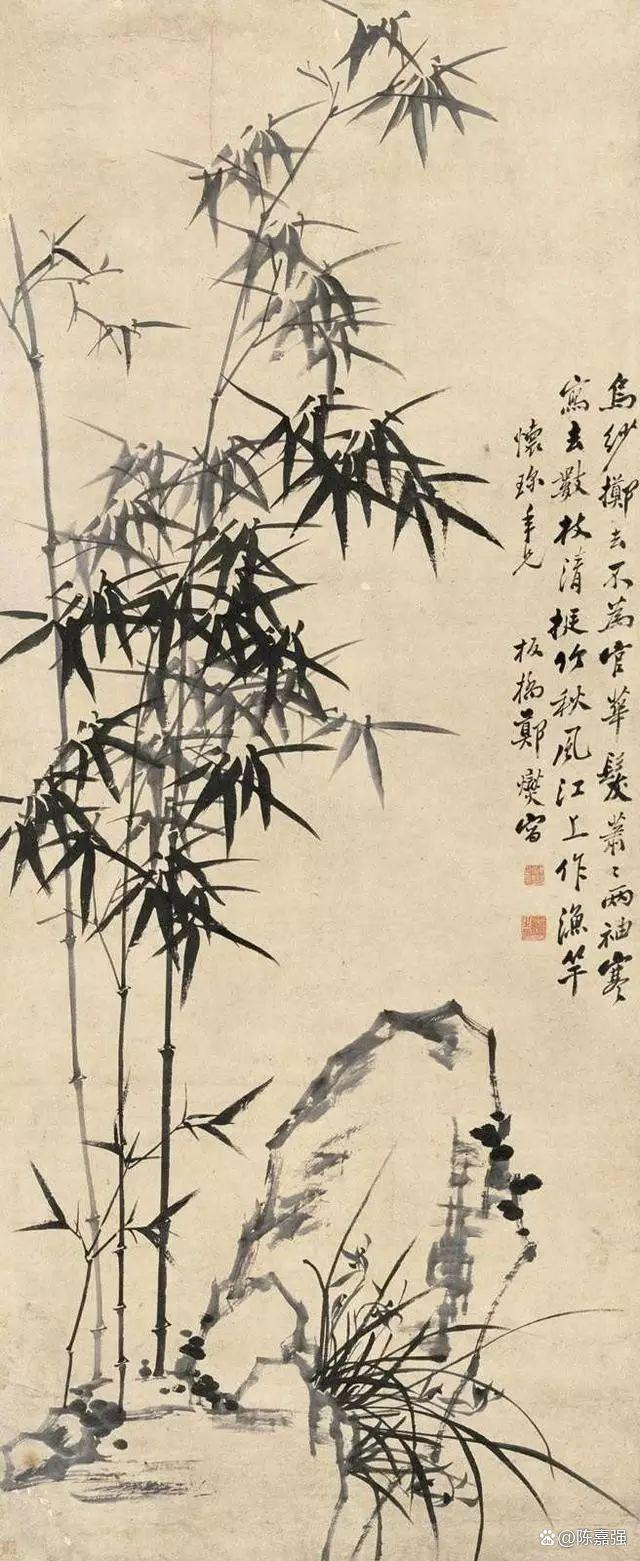 烏紗擲去不為官華髮蕭〻兩袖寒
寫去數枝清挺竹秋風江上作漁竿
懷年兄 板橋鄭燮寫
@陈嘉强